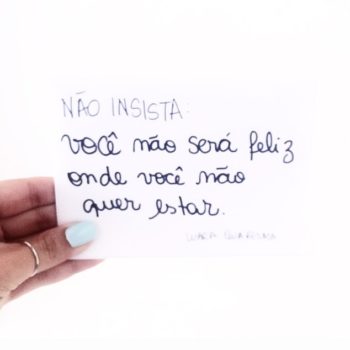 NÃO INSISTA:
você não será feliz
onde você não
quer estar.